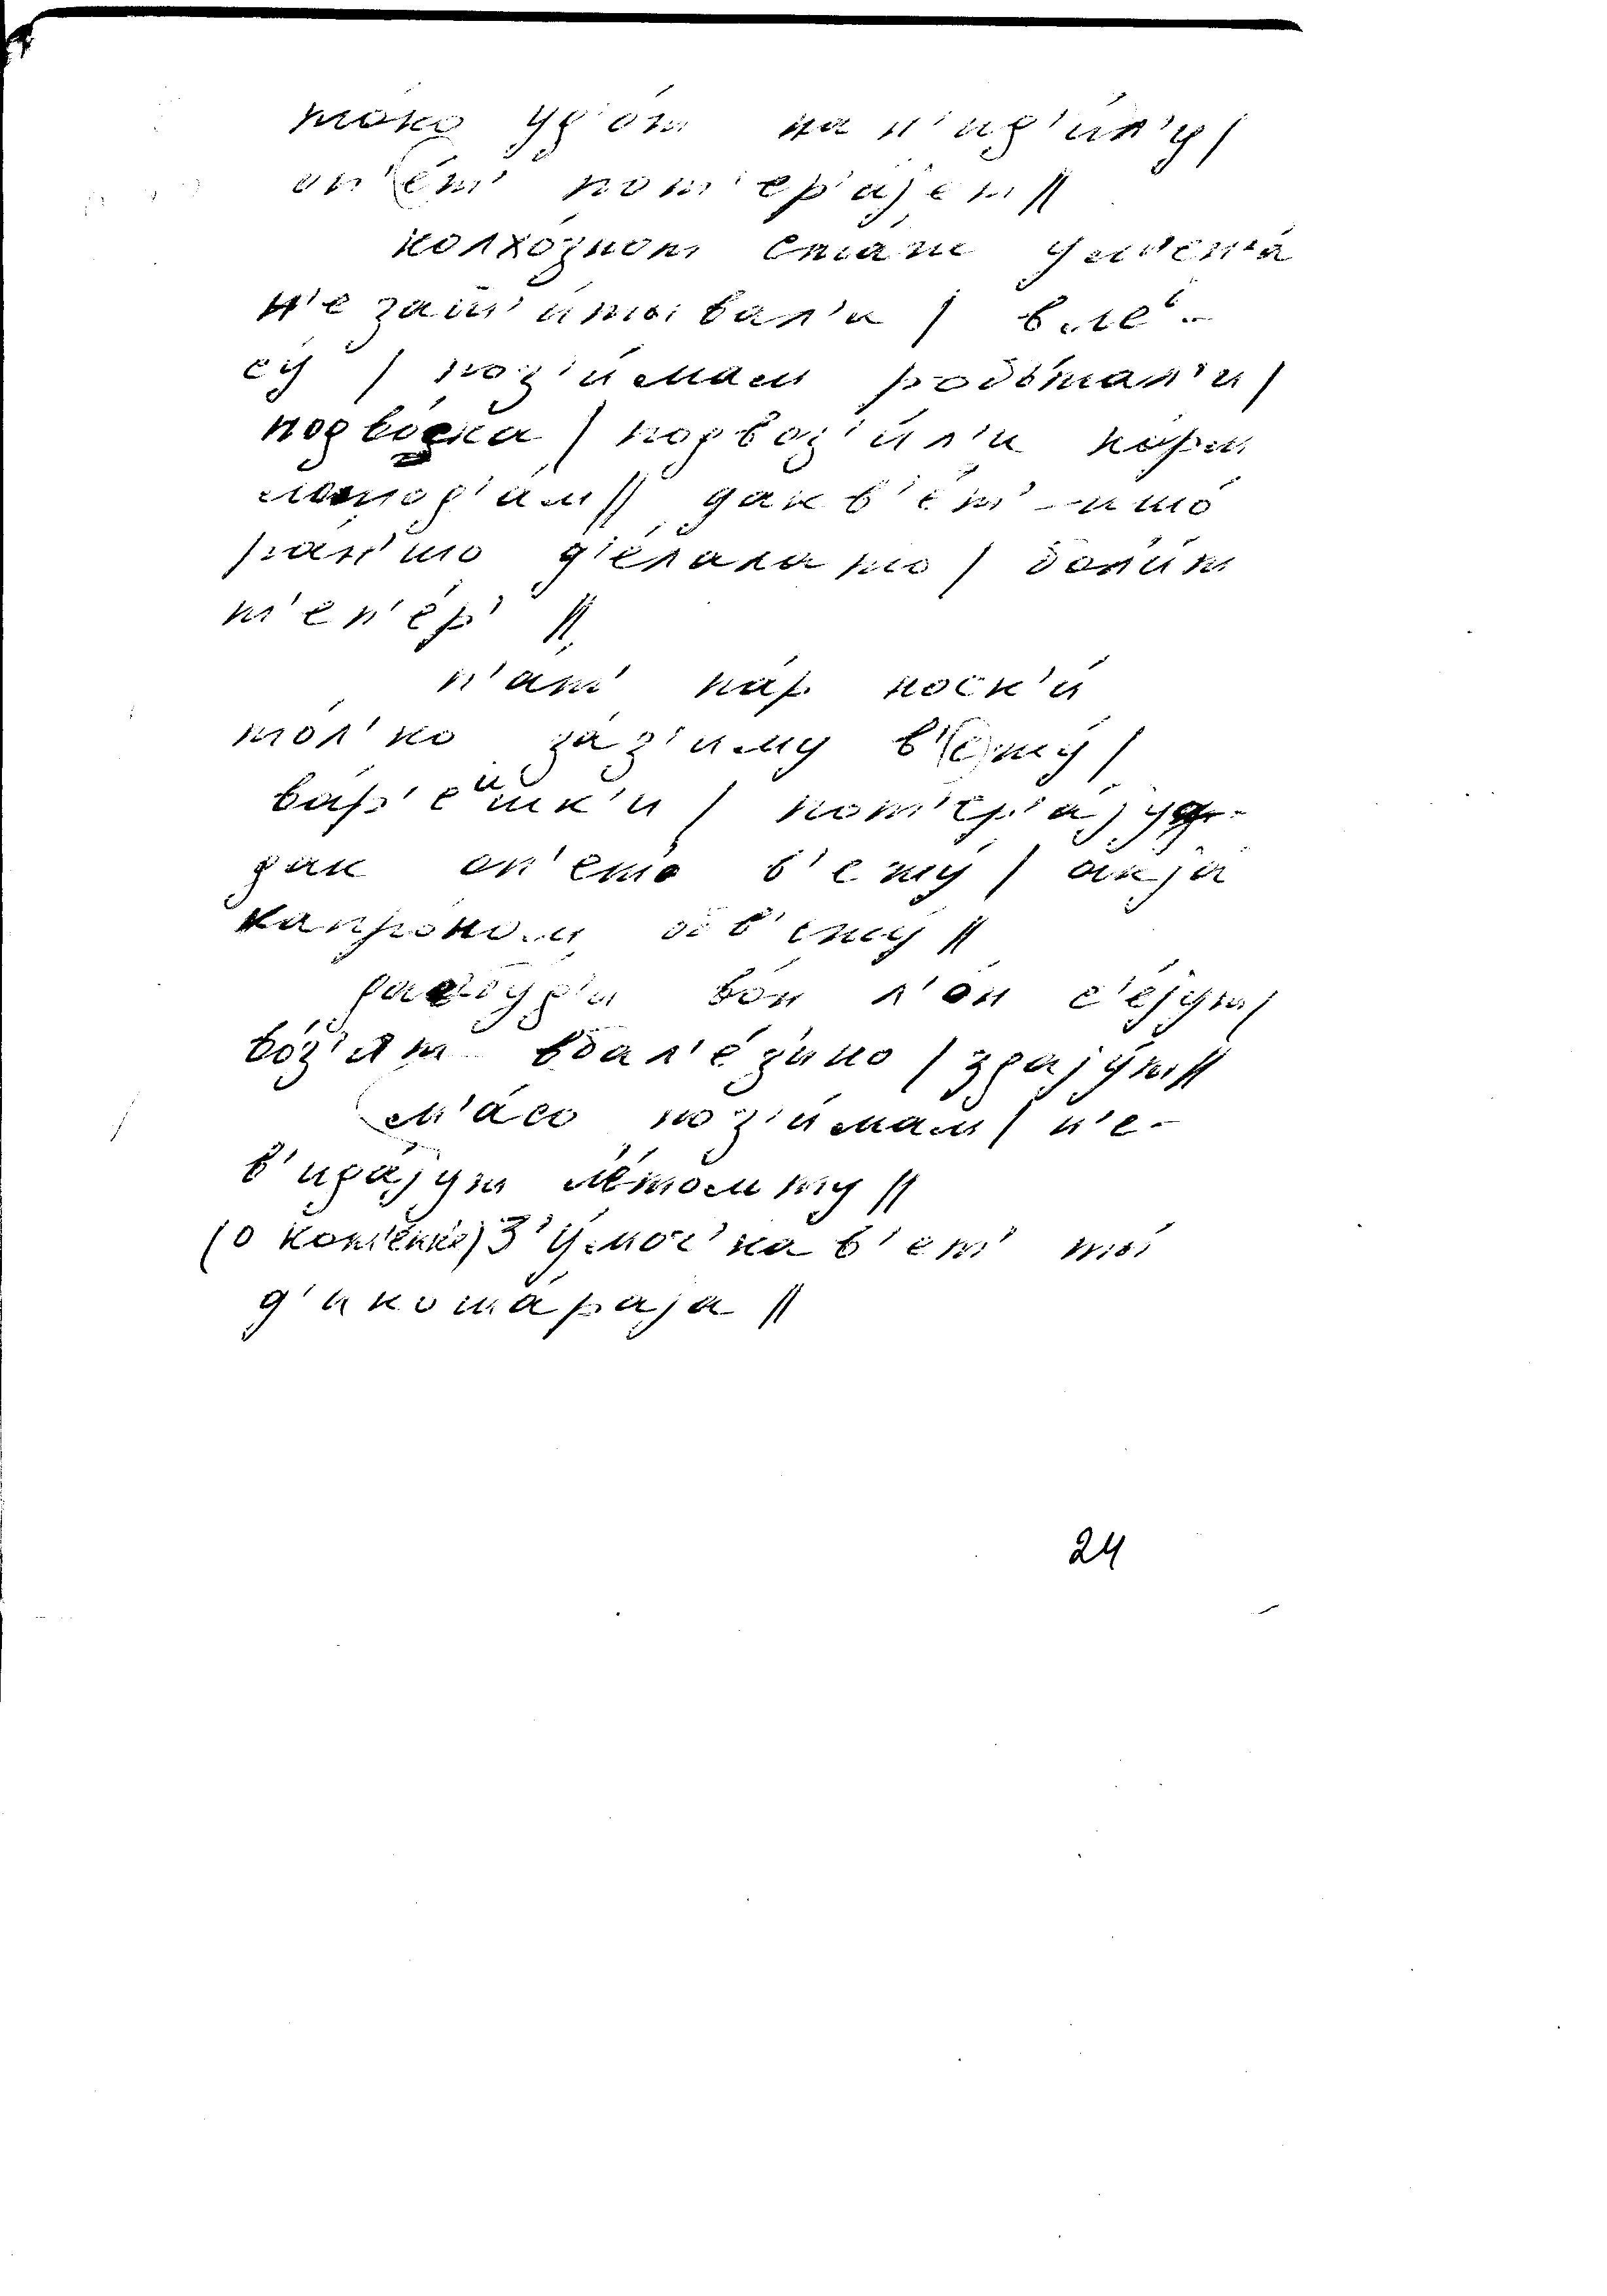 то́ко уд'о́т на н'ид'и́л'у /
оп'е́т' пот'ер'а́јет //
колхо́зном ста́ж у м'ен'а́
н'е зашш'и́тывал'и / в ле-
су́ / по з'и́мам робо́тал'и /
подво́зка / подвоз'и́л'и корм
лошод'а́м // дак в'е́т' - ишо́
ра́н'шо д'е́лала то / бол'и́т
т'еп'е́р' //
п'а́т' па́р носк'и́
то́л'ко за́ з'иму в'ежу́ /
ва́р'ешк'и / пот'ер'а́јут
дак оп'ет' в'ежу́ / а к ја
капро́ном обв'ежу́ //
ра́з буд'и во́н л'о́н с'е́јут /
во́з'ат в Бал'е́зино / здају́т //
м'а́со по з'и́мам / н'е-
в'ида́јут ле́том ту //
(о котёнке) З'у́моч'ка в'ет' ты
д'икоша́раја //
24